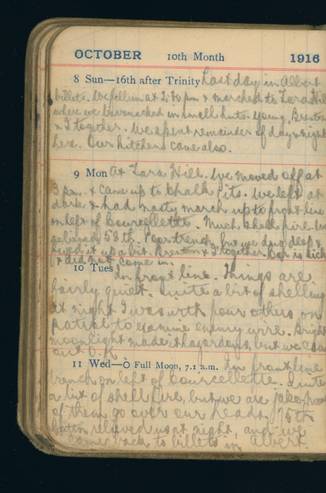 OCTOBER 10th Month 1916
8 Sun—16th after Trinity Last day in Albert
billets. We fell in at 2.30 pm & marched to Tara Hill
where we bivouacked in small huts. Young,
& I together. We spent remainder of day & night
here. Our kitchens came also.
9 Mon At Tara Hill. We moved off at
3 pm. & came up to chalk pits. We left at
dark & had nasty march up to front line
on left of Courcellette. Much shell fire. We
relieved 58th. Poor trench, but we dug deep &
fixed it up a bit. & I together. is sick
& did not come in.
10 Tues In front line. Things are
fairly quiet. Quite a bit of shelling
at night I was with four others on
patrol to examine enemy wire. Bright
moonlight made it hazardous, but we
out O.K.
11 Wed—O Full Moon, 7.1 a.m. In front line
trench on left of Courcellette. Quite
a bit of shell fire, but we are
of them go over our heads. 75th
Batn relieved us at night, and we
came back to billets in Albert.